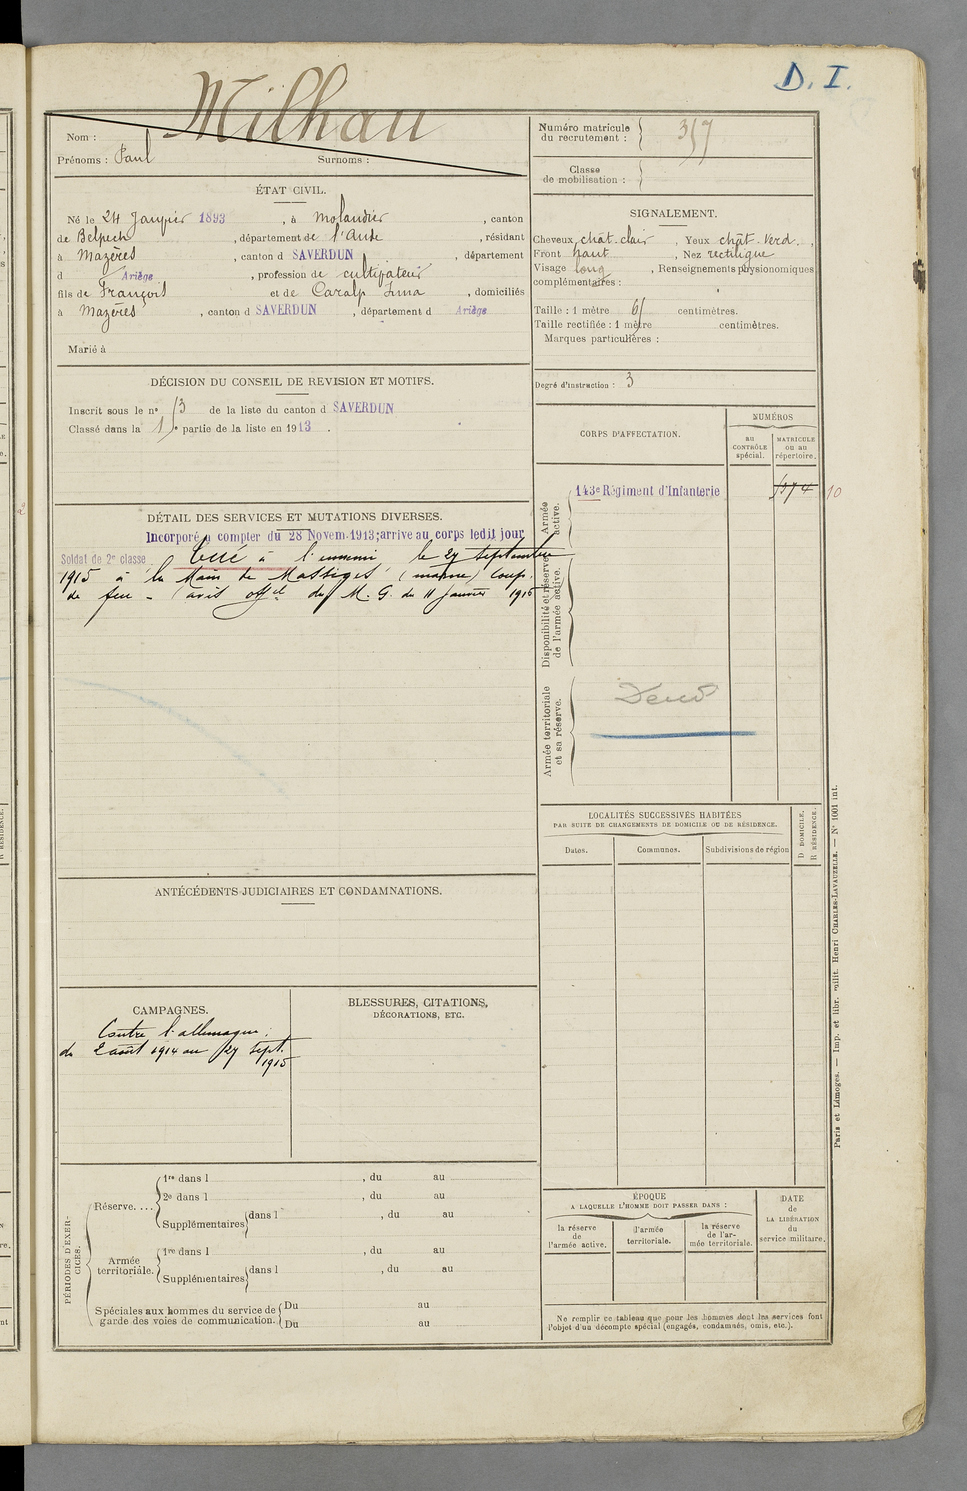 D. I.
Milhau
Nom :
Prénoms : Paul Surnoms :
ÉTAT CIVIL.
Né le 24 Janvier 1893, à Molandier, canton
de Belpech, département de l'Aude, résidant
à Mazères, canton d SAVERDUN, département
d Ariège, profession de cultivateur
fils de François et de Caralp, domiciliés
à Mazères, canton d SAVERDUN, département d Ariège
Marié à
DÉCISION DU CONSEIL DE REVISION ET MOTIFS.
Inscrit sous le n° de la liste du canton d SAVERDUN
Classé dans la 1re partie de la liste en 1913.
DÉTAIL DES SERVICES ET MUTATIONS DIVERSES.
Incorporé à compter du 28 Novem. 1913; arrive au corps ledit jour
Soldat de 2e classe Tué à l'ennemi le 27 septembre
1915 à la Main de Massiges (marne) Coup.
de feu - (avis offel du M. G. du 11 Janvier 1916
ANTÉCÉDENTS JUDICIAIRES ET CONDAMNATIONS.
CAMPAGNES.
Contre l'allemagne :
du 2 août 1914 au 27 Sept.
1915
BLESSURES, CITATIONS,
DÉCORATIONS, ETC.
PÉRIODES D'EXER-
CICES.
Réserve....
1re dans l , du au
2e dans l , du au
Supplémentaires dans l , du au
Armée
territoriale.
1re dans l , du au
Supplémentaires dans l , du au
Spéciales aux hommes du service de
garde des voies de communication.
Du au
Du au
Numéro matricule
du recrutement :
Classe
de mobilisation :
SIGNALEMENT.
Cheveux chât-clair, Yeux chât-verd.,
Front haut, Nez rectiligne
Visage long, Renseignements physionomiques
complémentaires :
Taille : 1 mètre centimètres.
Taille rectifiée : 1 mètre centimètres.
Marques particulières :
Degré d'instruction : 3
CORPS D'AFFECTATION.
NUMÉROS
au
CONTRÔLE
spécial.
MATRICULE
OU AU
répertoire.
Armée
active.
143e Régiment d'Infanterie
10
Disponibilité et réserve
de l'armée active.
Armée territoriale
et sa réserve.
LOCALITÉS SUCCESSIVES HABITÉES
PAR SUITE DE CHANGEMENTS DE DOMICILE OU DE RÉSIDENCE.
Dates.
Communes.
Subdivisions de région
D DOMICILE.
R RÉSIDENCE.
ÉPOQUE
A LAQUELLE L'HOMME DOIT PASSER DANS :
la réserve
de
l'armée active.
l'armée
territoriale.
la réserve
de l'ar-
mée territoriale.
DATE
de
LA LIBÉRATION
du
service militaire.
Ne remplir ce tableau que pour les hommes dont les services font
l'objet d'un décompte spécial (engagés, condamnés, omis, etc.).
Paris et Limoges. — Imp. et libr. milit. Henri CHARLES-LAVAUZELLE. — N° 1001 int.